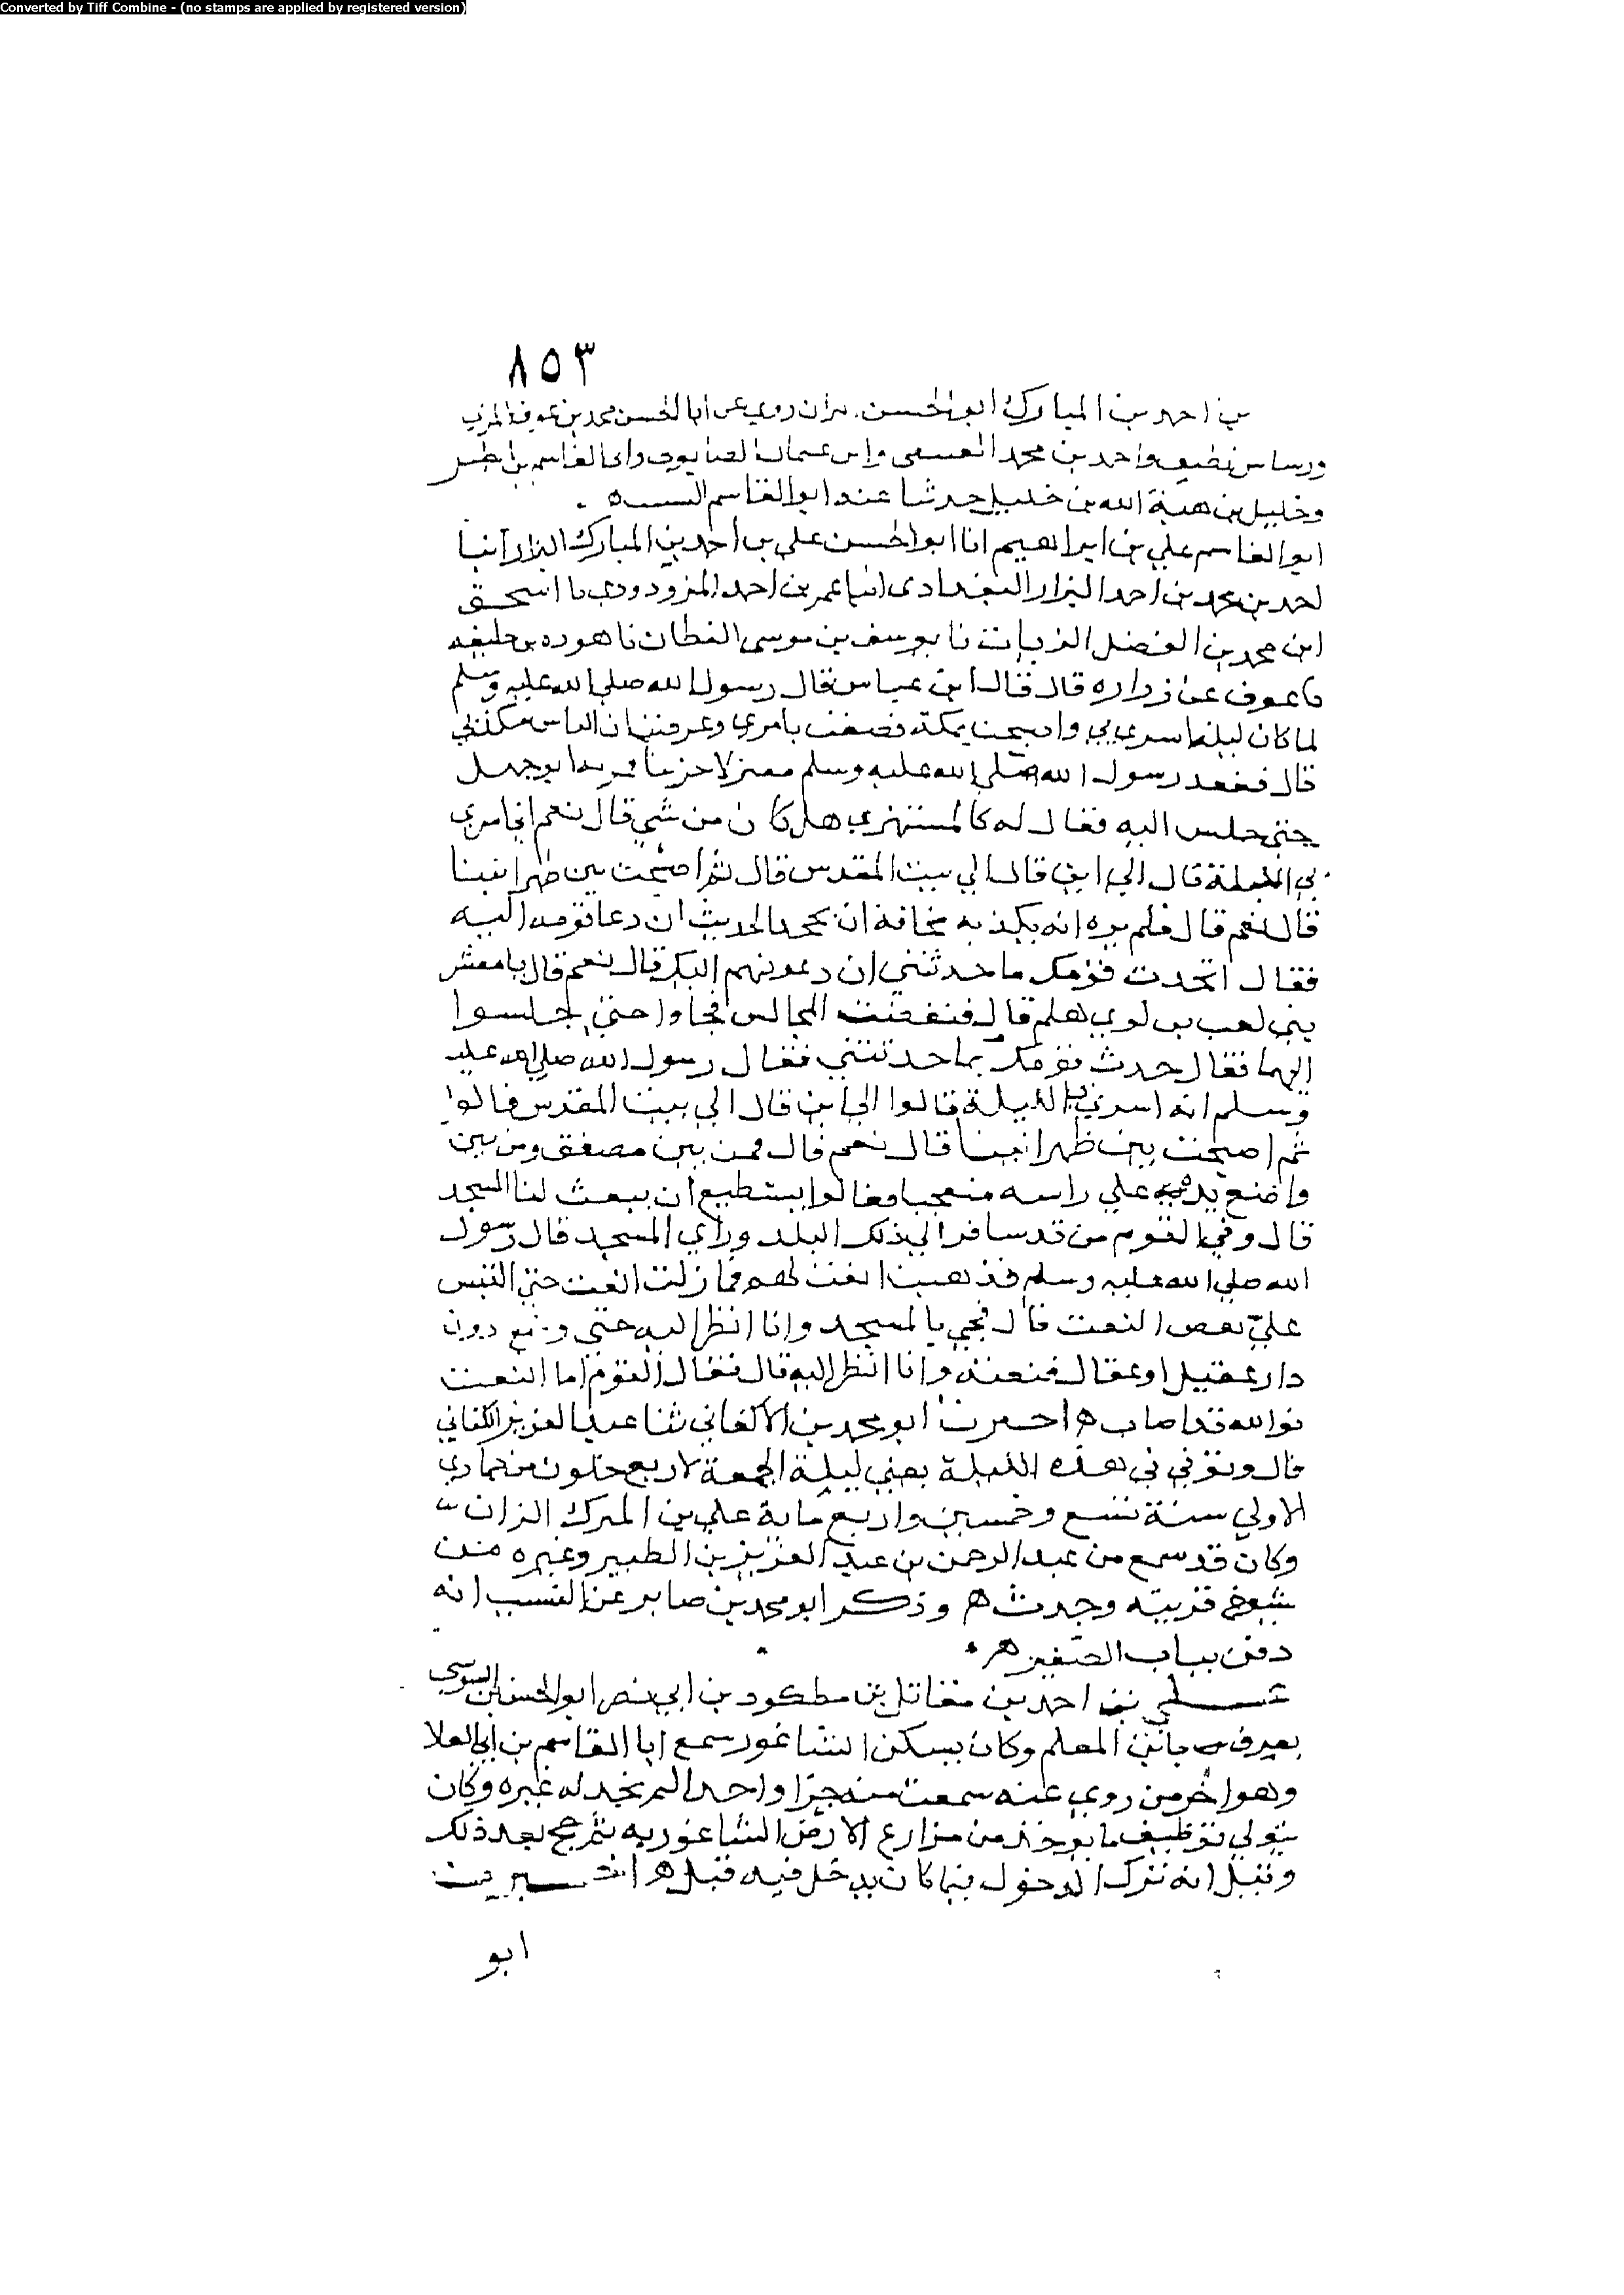 Converted by Tiff Combine - (no stamps are applied by registered version)
٨٥٣
بن احمد بن المبارك ابو الحسن روي عن ابا الحسن محمد بن عوف المزني
واحمد بن محمد وابن عمان الصابوني وابا القاسم بن
وخليل بن هبة الله بن خليل حدثنا عنه ابو القاسم النسيب ه
ابو القاسم علي بن ابراهيم انا ابو الحسن علي بن احمد بن المبارك البزار انبا
احمد بن محمد بن احمد البزار البغدادي انبا عمر بن احمد المزورودي نا اسحق
ابن محمد بن الفضل الزيات نا يوسف بن موسى القطان نا هوده بن خليفه
نا عوف عن زراره قال قال ابن عباس قال رسول الله صلي الله عليه وسلم
لما كان ليلة اسري بي واصبحت بمكة فضقت بامري وعرفت ان الناس مكذبي
قال فقعد رسول الله صلي الله عليه وسلم معتزلا حزينا فمر به ابو جهل
حتي جلس اليه فقال له كالمستهزي هل كان من شي قال نعم اني اسري
بي الليلة قال الي اين قال الي بيت المقدس قال ثم اصبحت بين ظهرانينا
قال نعم قال فلم يره انه يكذبه مخافة ان يجحد الحديث ان دعا قومه اليه
فقال اتحدث قومك ما حدثتني ان دعوتهم اليك قال نعم قال يا معشر
بني كعب بن لوي هلم قال فتنفضت المجالس فجاوا حتي جلسوا
اليهما فقال حدث قومك بما حدثتني فقال رسول الله صلي الله عليه
وسلم انه اسري بي الليلة قالوا الي اين قال الي بيت المقدس قالوا
ثم اصبحت بين ظهرانينا قال نعم قال فمن بين مصفق ومن بين
واضع يديه علي راسه متعجبا وقالوا يستطيع ان ينعت لنا المسجد
قال وفي القوم من قد سافر الي ذلك البلد وراي المسجد قال رسول
الله صلي الله عليه وسلم فذهبت انعت لهم فما زلت انعت حتي التبس
عليّ بعض النعت قال فجي بالمسجد وانا انظر اليه حتى وضع دون
دار عقيل او عقال فنعته وانا انظر اليه قال فقال القوم اما النعت
فوالله قد اصاب ه اخبرنا ابو محمد بن الاكفاني ثنا عبد العزيز الكتاني
قال وتوفي في هذه الليلة يعني ليلة الجمعة لاربع خلون من جمادي
الاولي سنة تسع وخمسين واربع ماية علي بن المبرك الزان
وكان قد سمع من عبد الرحمن بن عبد العزيز بن الطبير وغيره من
شيوخ قريته وحدث ه وذكر ابو محمد بن صابر عن النسيب انه
دفن بباب الصغير ه
علي بن احمد بن مقاتل بن مطكود بن ابي نصر ابو الحسن بن السوسي
يعرف المعلم وكان يسكن الشاغور سمع ابا القاسم بن ابي العلا
وهو اخر من روي عنه سمعت منه جزا واحدا لم نجد له غيره وكان
يتولي توظيف ما يوخذ من مزارع الارض الشاغوريه ثم حج بعد ذلك
وقيل انه ترك الدخول فيما كان يدخل فيه قبل ه اخبرنا
ابو